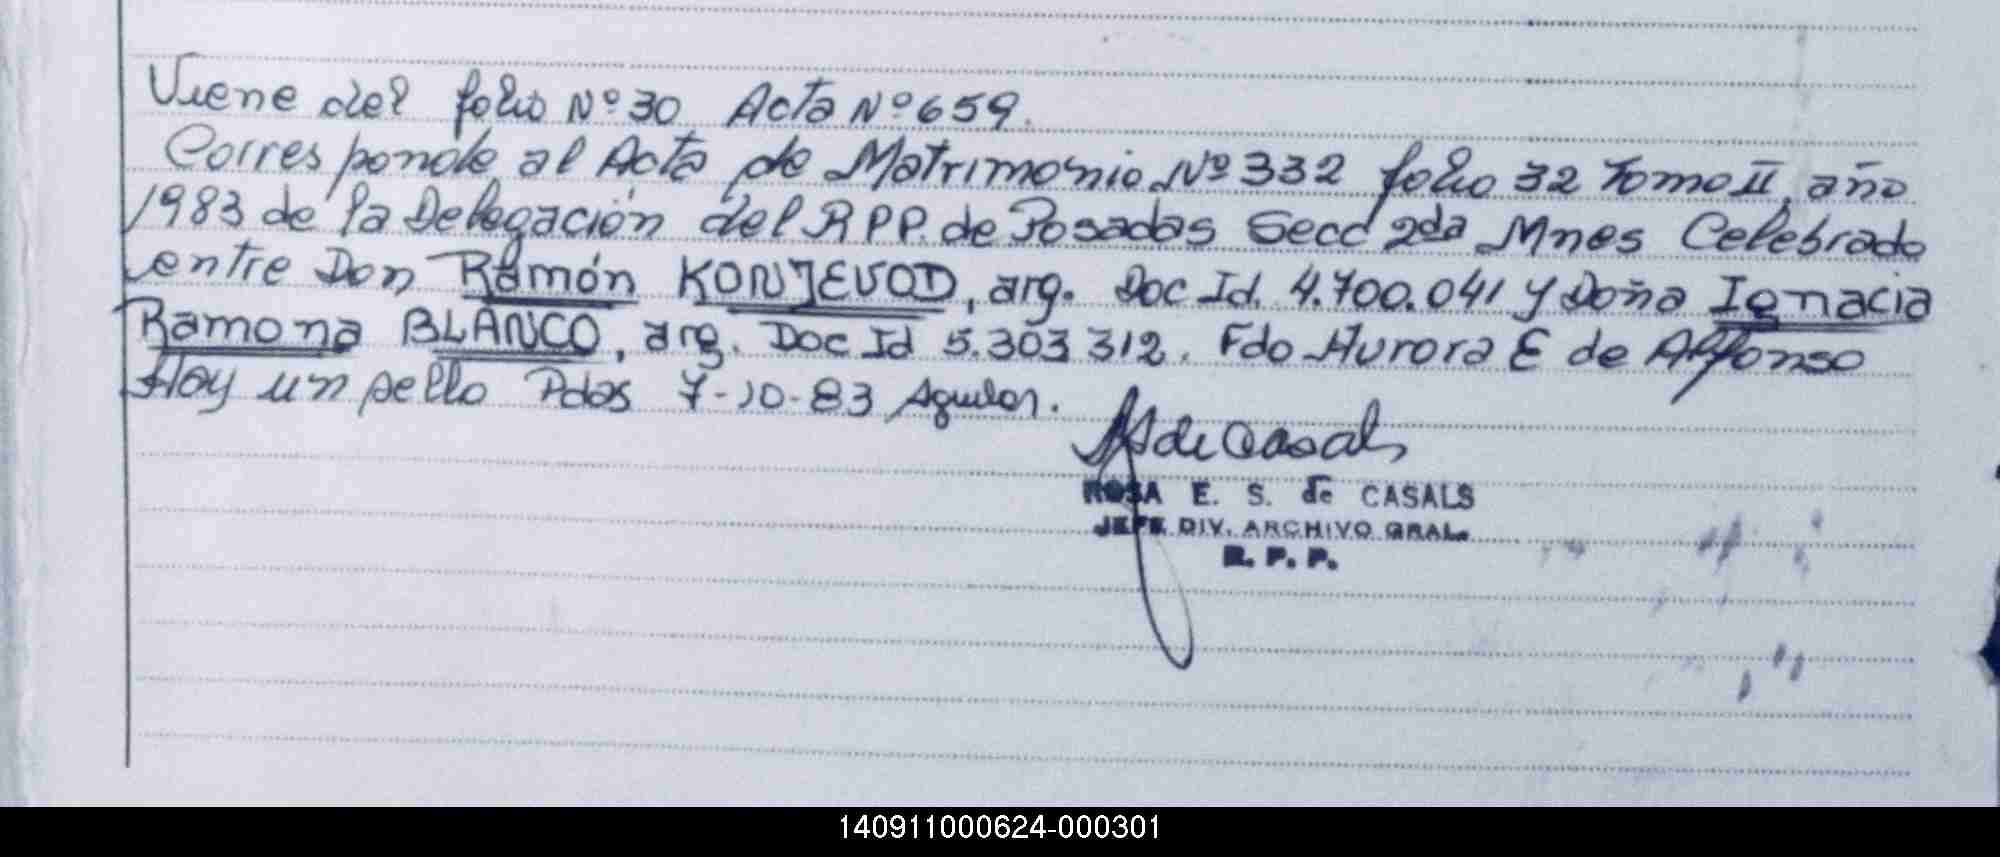 Viene del folio Nº 30 Acta Nº 659.
Corresponde al Acta de Matrimonio Nº 332 folio 32 Tomo II, año
1983 de la Delegación del R P P. de Posadas Secc 2da Mnes Celebrado
entre Don Ramón KONJEVOD, arg. Doc Id. 4.700.041 y Doña Ignacia
Ramona BLANCO, arg. Doc Id 5.303 312. Fdo Aurora E de Alfonso
Hay un sello Pdas 7-10-83 Aguilar.
de Casals
ROSA E. S. de CASALS
JEFE DIV. ARCHIVO GRAL.
R. P. P.
140911000624-000301